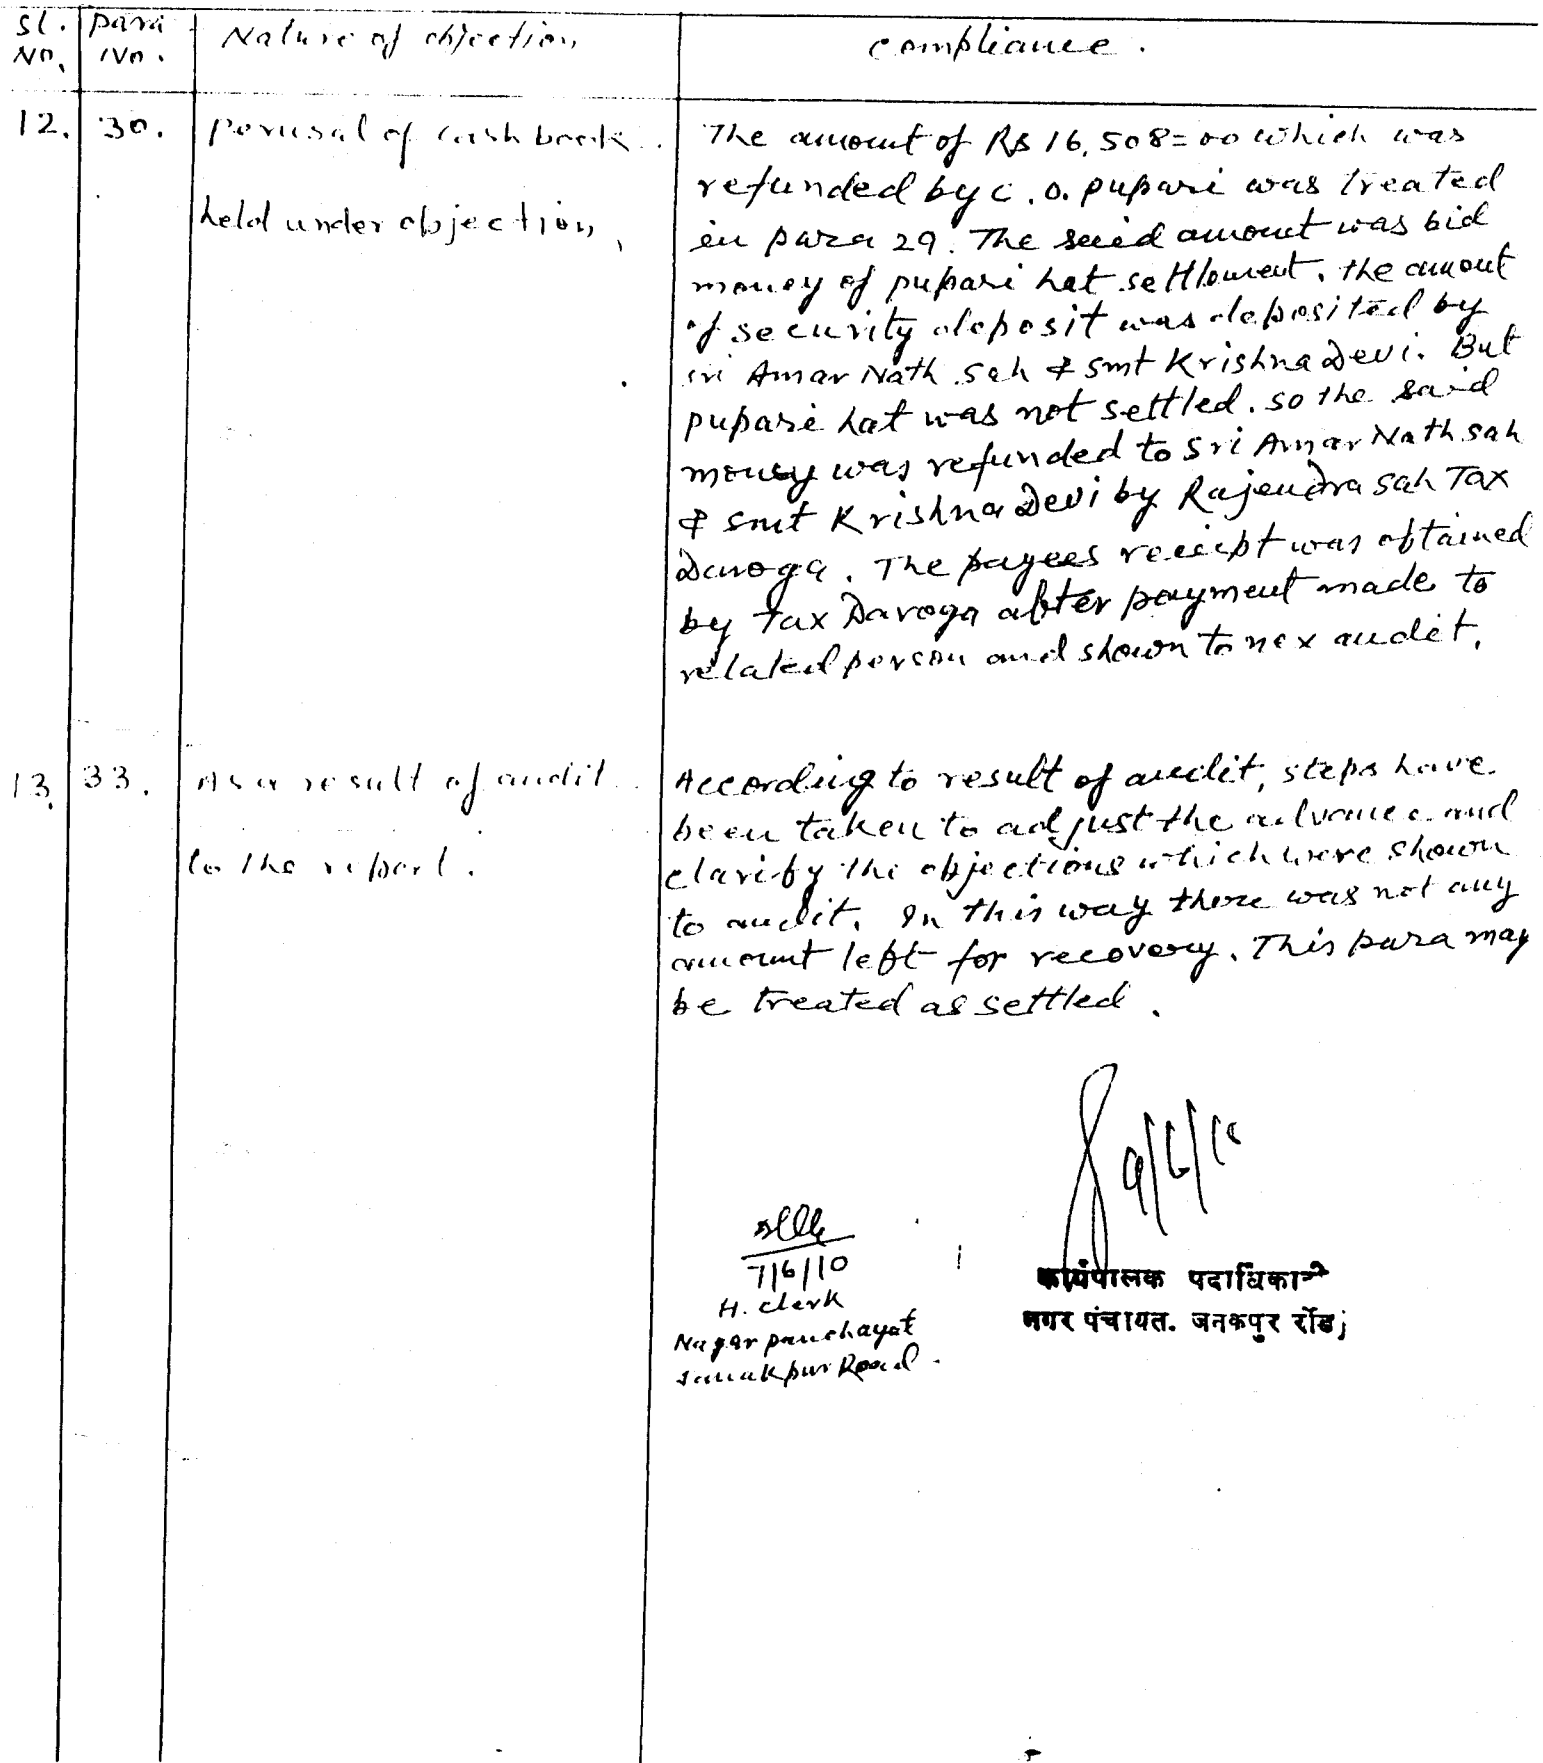 Sl. No. | Para No. | Nature of objection | Compliance.
12. | 30. | Perusal of cash book ..
held under objection,
The amount of Rs 16,508=00 which was
refunded by C.O. pupari was treated
in para 29. The said amount was bid
money of pupari hat settlement. The amout
of security deposit was deposited by
sri Amar Nath Sah & smt Krishna Devi. But
pupari hat was not settled. so the said
money was refunded to Sri Amar Nath sah
& smt Krishna Devi by Rajendra Sah Tax
Daroga. The payees receipt was obtained
by Tax Daroga after payment made to
related person and shown to nex audit.
13. | 33. | As a result of audit ..
to the report.
According to result of audit, steps have
been taken to adjust the advance and
clarify the objections which were shown
to audit. In this way there was not any
amount left for recovery. This para may
be treated as settled.
9/6/10
7/6/10
H. Clerk
Nagar panchayat
Janakpur Road.
कार्यपालक पदाधिकारी
नगर पंचायत. जनकपुर रोड